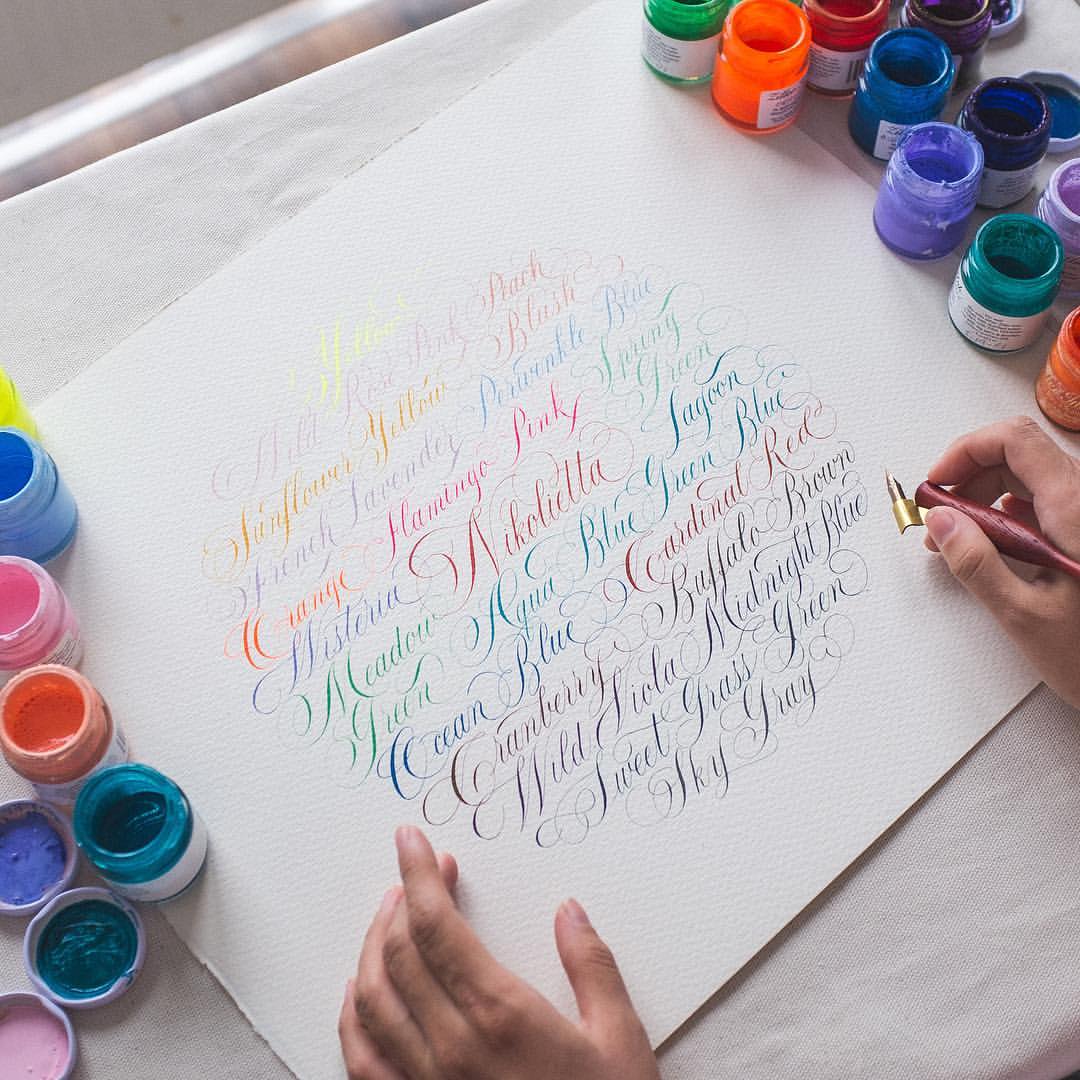 Yellow
Wild Rose Pink Peach
Sunflower Yellow Blush
French Lavender Periwinkle Blue
Orange Flamingo Pink Spring
Green
Wisteria Nikolietta Lagoon
Meadow Aqua Blue Green Blue
Green Cardinal Red
Ocean Blue Buffalo Brown
Cranberry Midnight Blue
Wild Viola Green
Sweet Grass Gray
Sky